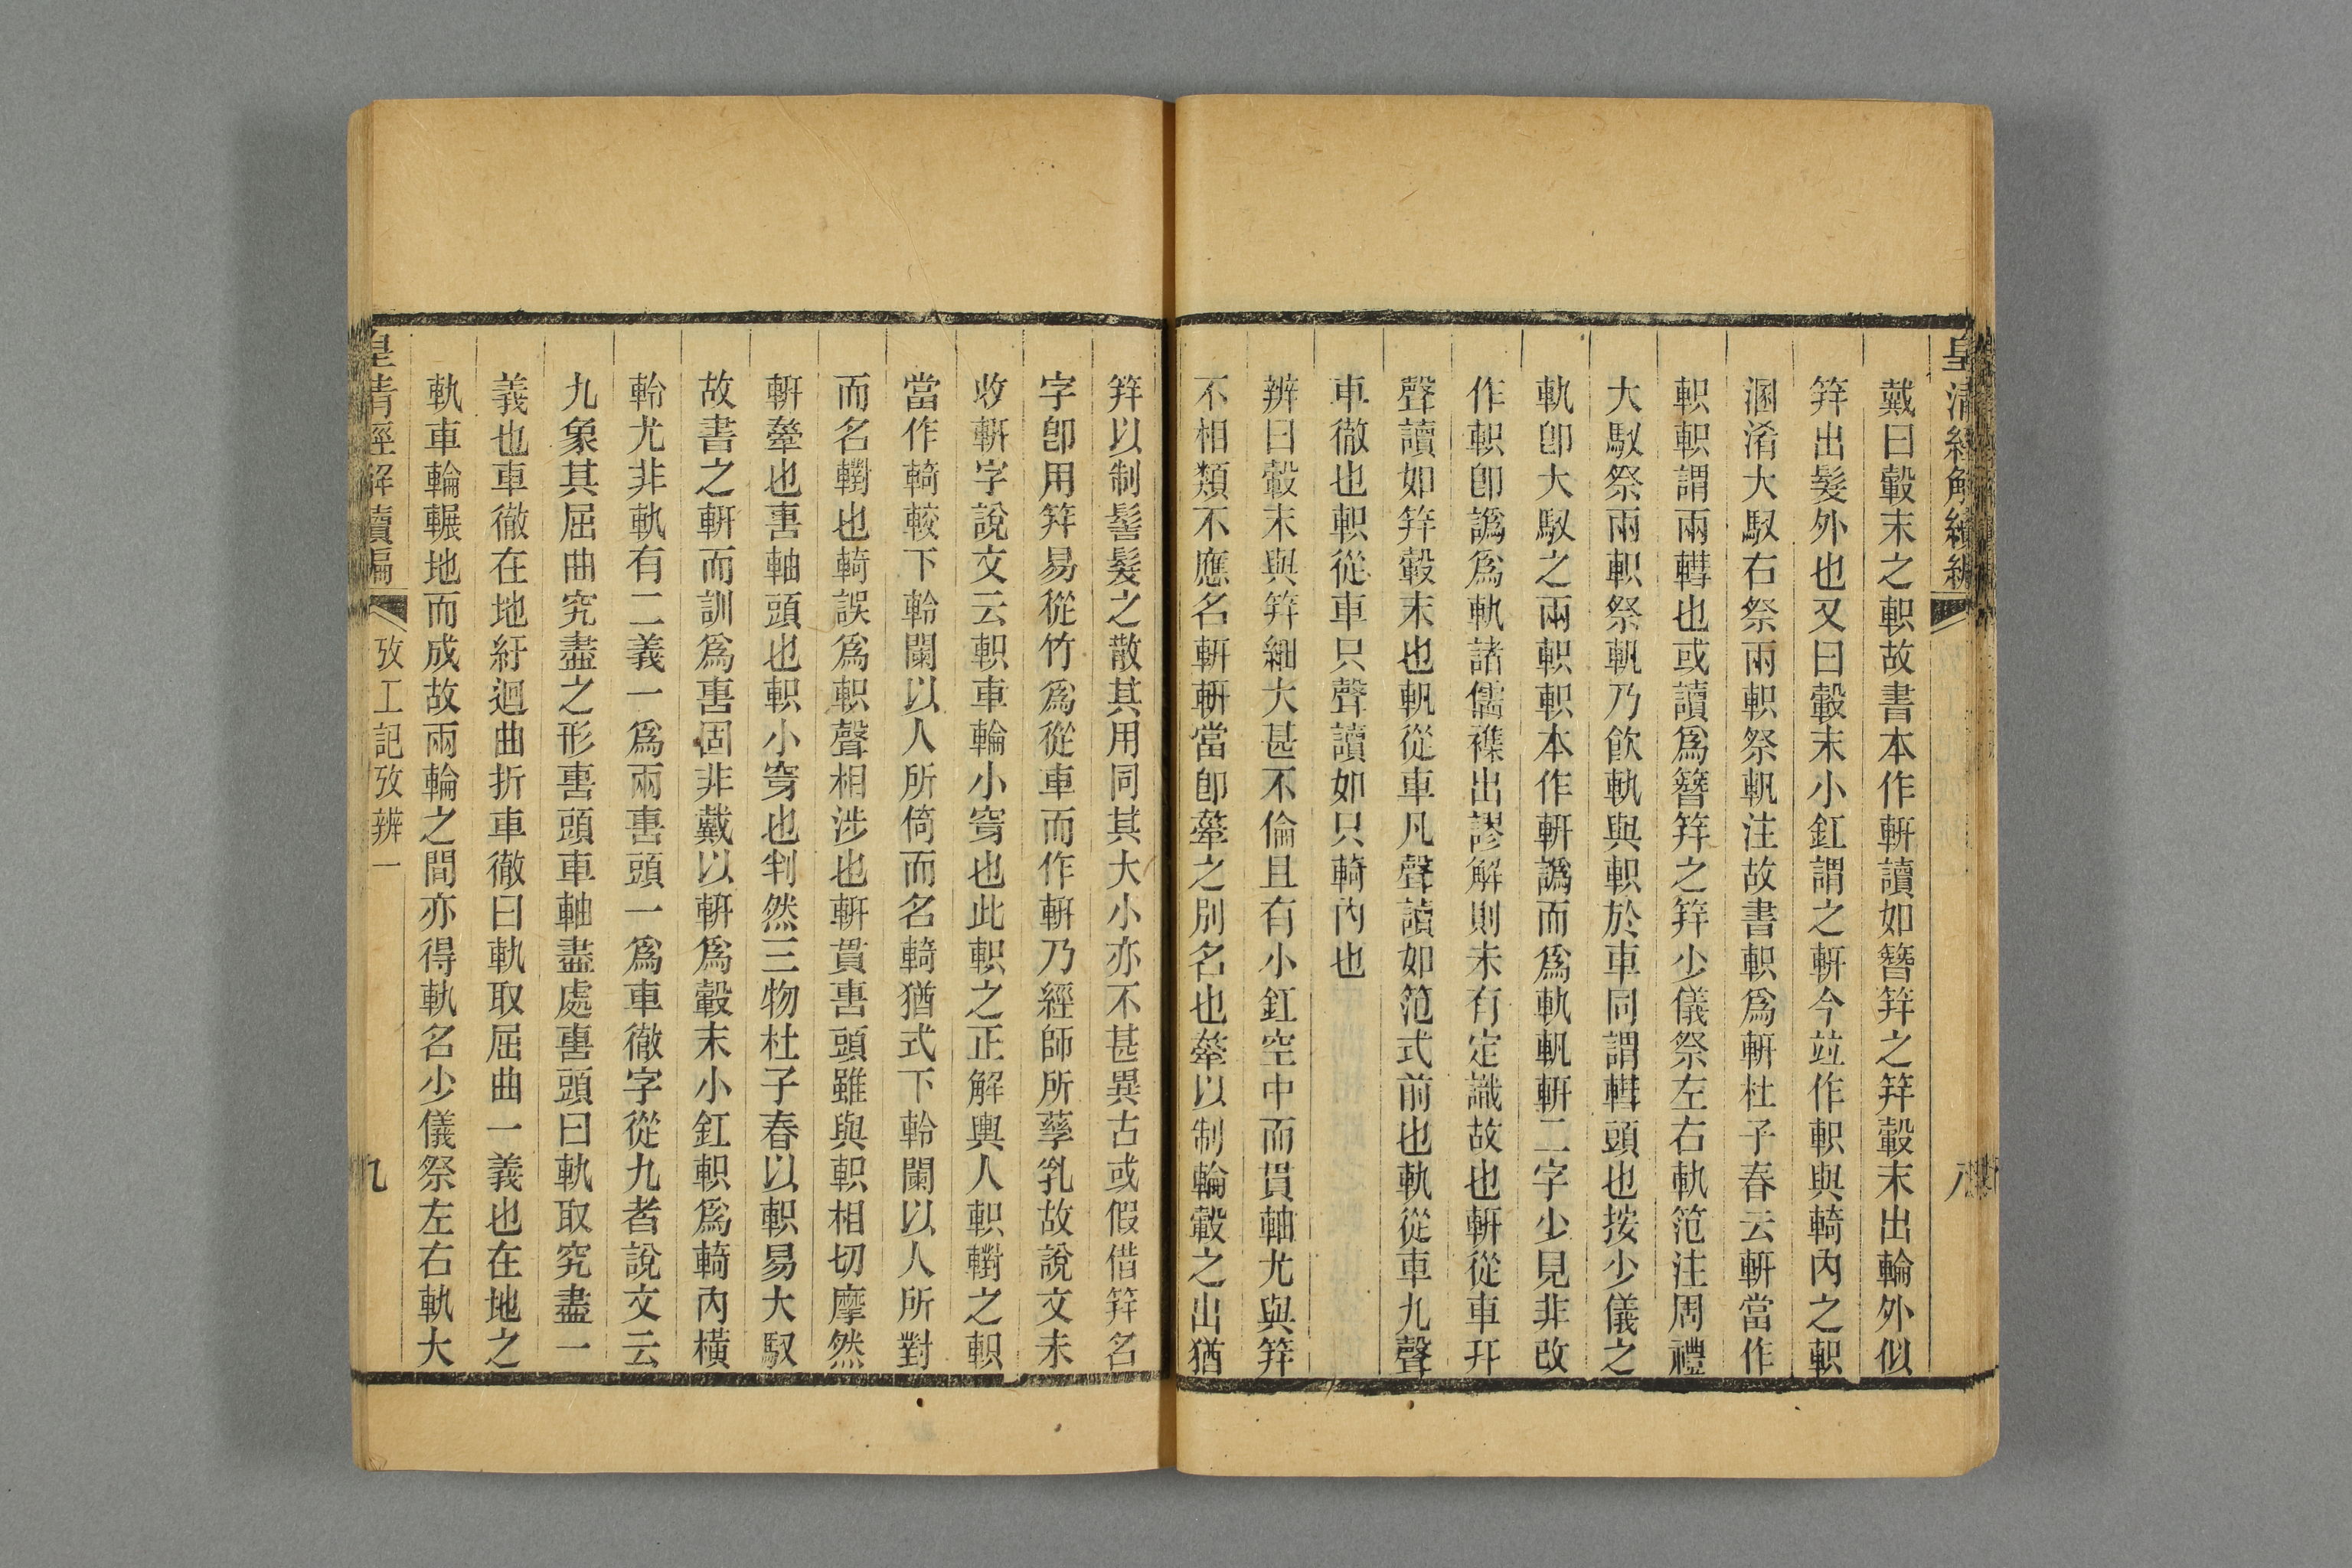 皇清經解續編
八
戴曰轂末之軹故書本作䡓讀如簪筓之筓轂末出輪外似
筓出髮外也又曰轂末小釭謂之䡓今竝作軹與輢內之軹
溷淆大馭右祭兩軹祭軓注故書軹爲䡓杜子春云䡓當作
軹軹謂兩轊也或讀爲簪筓之筓少儀祭左右軌范注周禮
大馭祭兩軹祭軓乃飮軌與軹於車同謂轊頭也按少儀之
軌卽大馭之兩軹軹本作䡓譌而爲軌軓䡓二字少見非改
作軹卽譌爲軌諸儒襍出謬解則未有定識故也䡓從車幵
聲讀如筓轂末也軓從車凡聲讀如范式前也軌從車九聲
車徹也軹從車只聲讀如只輢內也
辨曰轂末與筓細大甚不倫且有小釭空中而貫軸尤與筓
不相類不應名䡓䡓當卽舝之別名也舝以制輪轂之出猶
筓以制髻髮之散其用同其大小亦不甚異古或假借筓名
字卽用筓易從竹爲從車而作䡓乃經師所孳乳故說文未
收䡓字說文云軹車輪小穿也此軹之正解輿人軹轛之軹
當作輢較下軨闌以人所倚而名輢猶式下軨闌以人所對
而名轛也輢誤爲軹聲相涉也䡓貫軎頭雖與軹相切摩然
䡓舝也軎軸頭也軹小穿也判然三物杜子春以軹易大馭
故書之䡓而訓爲軎固非戴以䡓爲轂末小釭軹爲輢內橫
軨尤非軌有二義一爲兩軎頭一爲車徹字從九者說文云
九象其屈曲究盡之形軎頭車軸盡處軎頭曰軌取究盡一
義也車徹在地紆迴曲折車徹曰軌取屈曲一義也在地之
軌車輪輾地而成故兩輪之間亦得軌名少儀祭左右軌大
皇清經解續編
攷工記攷辨一
九